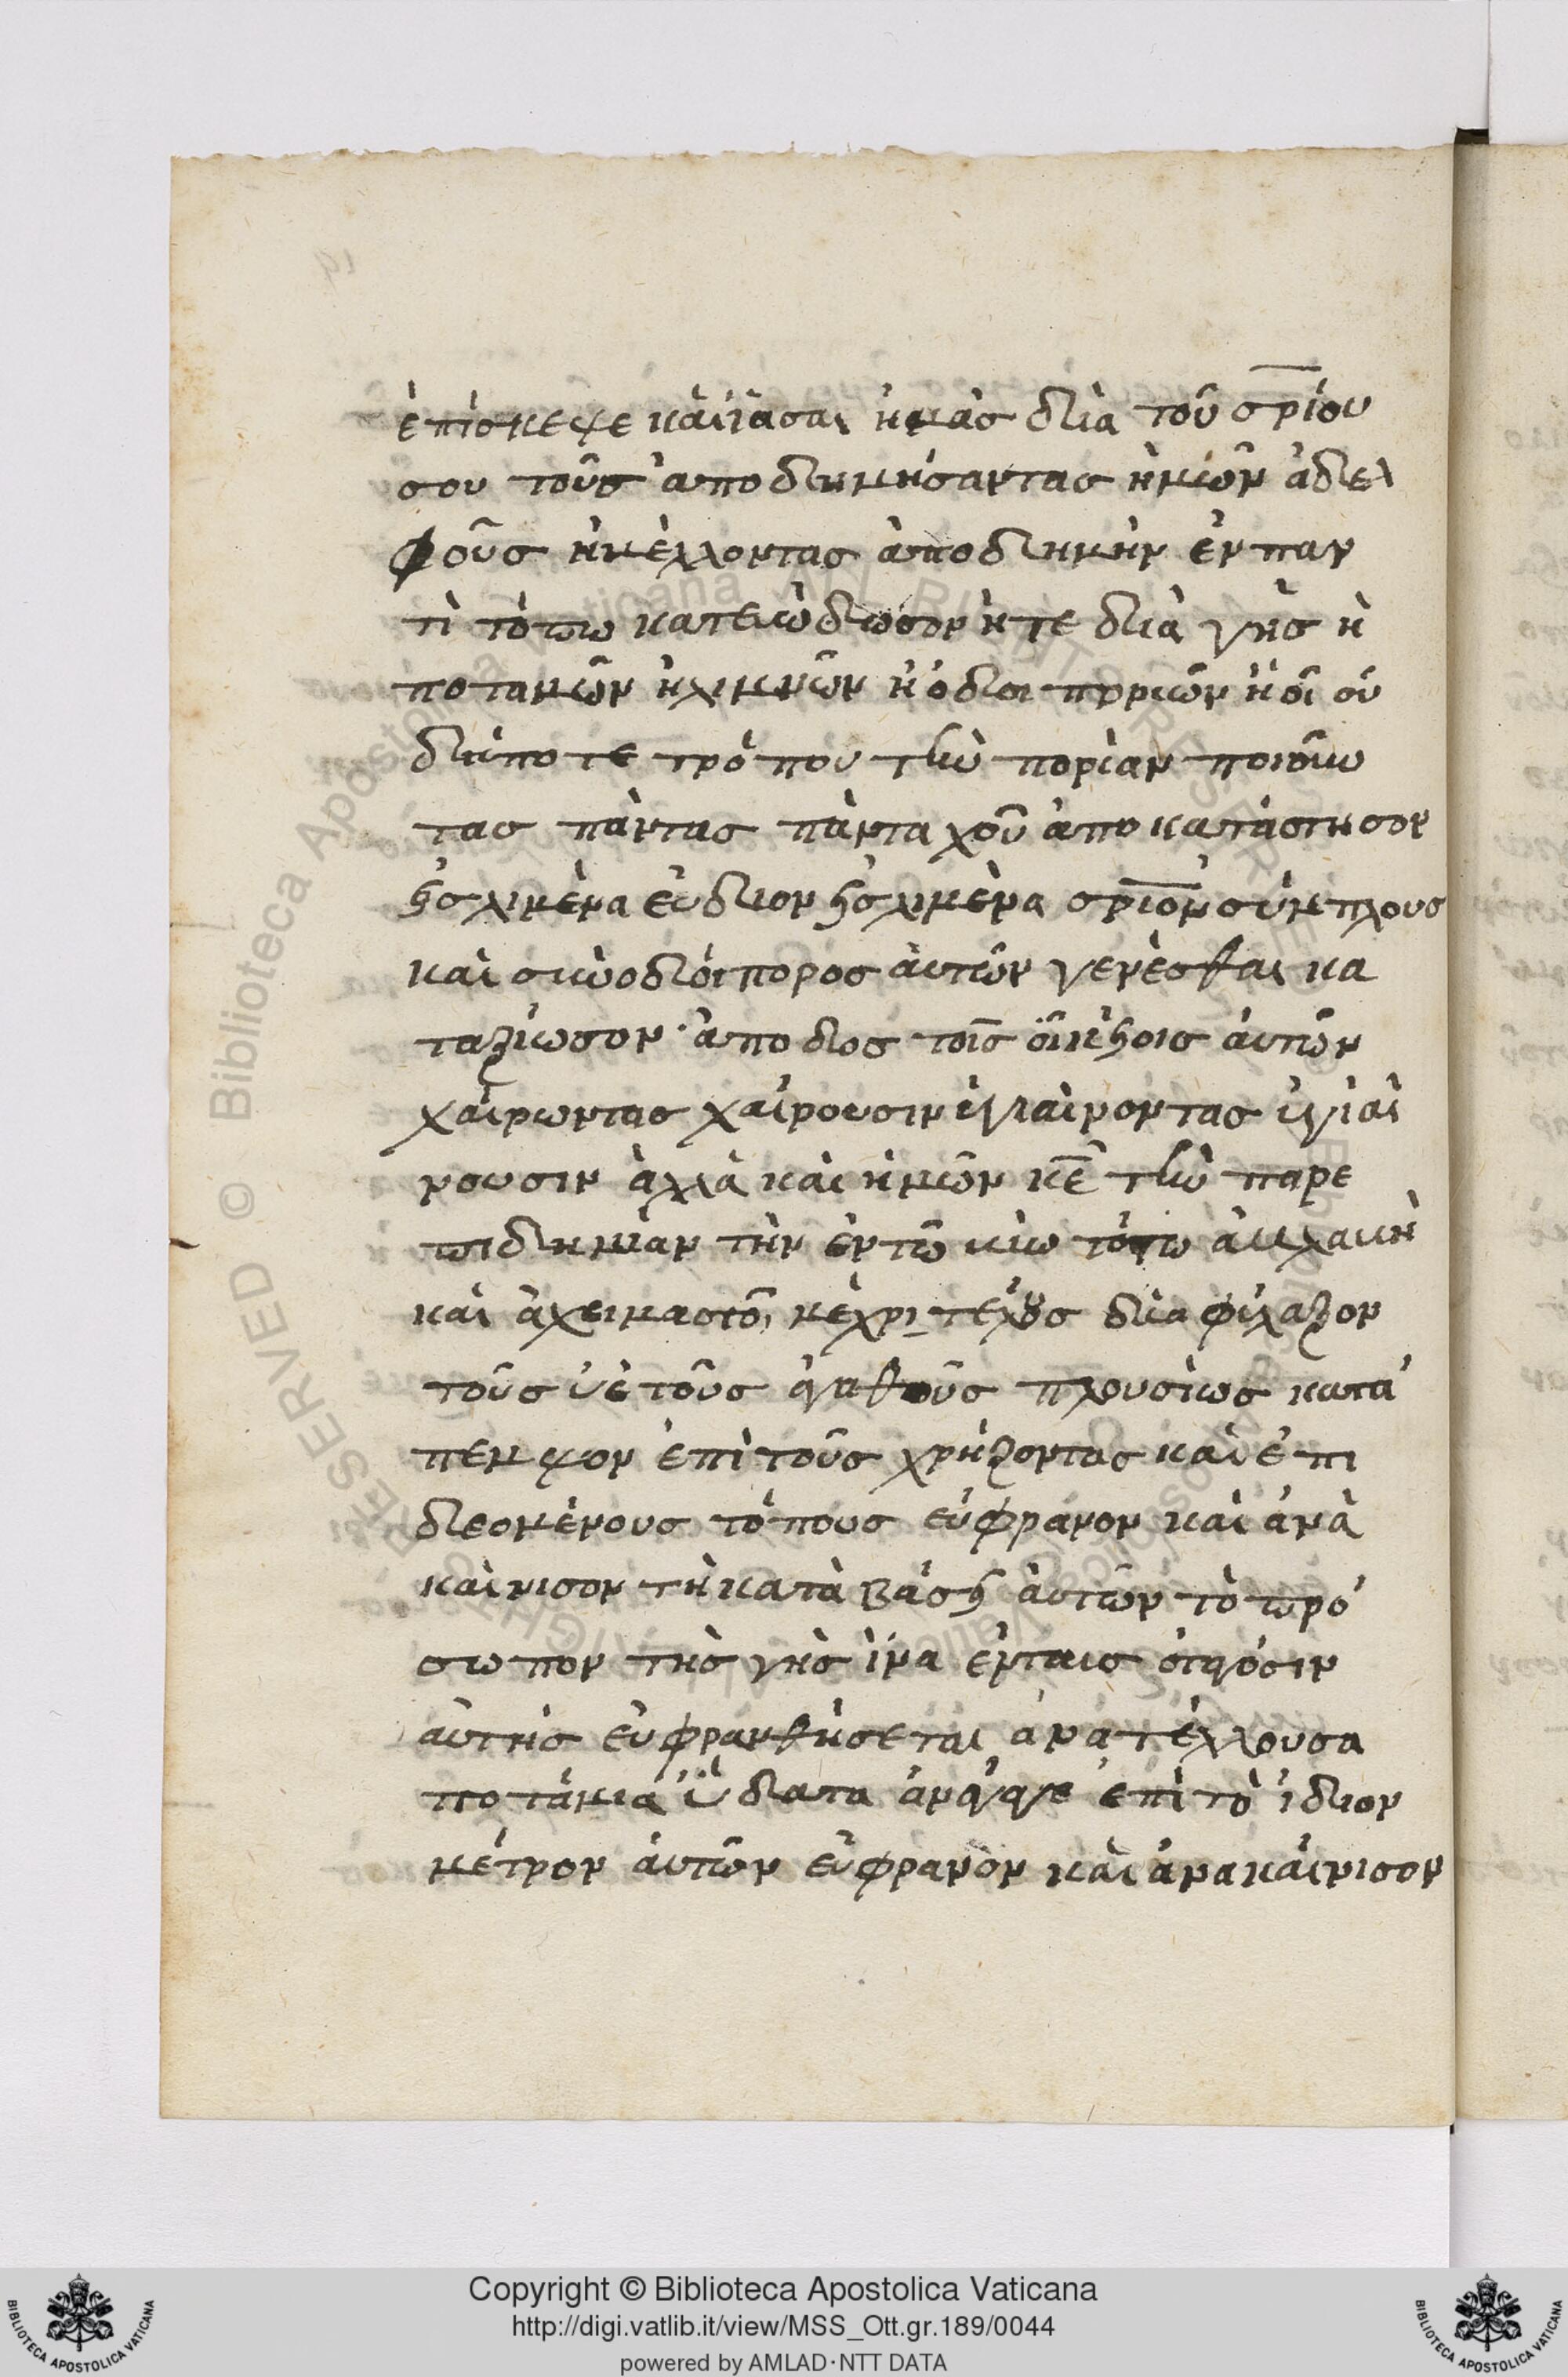 ἐπίσκεψε καὶ ἴασαι ἡμάς διὰ τοῦ σ̅ρ̅ίου
σου τοῦς ἀποδημήσαντας ἡμῶν ἀδελ
φοῦς ἡμέλλοντας ἀποδημὴν ἐν παν
τὶ τόπω κατευώδωσον ἤτε διὰ γῆς ἢ
ποταμῶν ἢ λιμνῶν ἢ ὁδοιποριῶν ἢ οἵ οὑ
δήποτε τρόπου τὴν πορίαν ποιοῦν
τας πάντας πάντα χοῦ ἀποκατάστησον
εἰς λιμένα εὔδιον εἰς λιμένα σ̅ρ̅ιον σύμπλους
καὶ συνοδοίπορος αὐτῶν γενέσθαι κα
ταξίωσον· ἀποδος τοῖς οἰκείοις αὐτῶν
χαίρωντας χαίρουσιν ὑγιαίνοντας ὑγιαί
νουσιν ἀλλὰ καὶ ἡμῶν κ̅ε̅ τὴν παρε
πιδημίαν τὴν ἐν τῶ βίω τούτω ἀβλαβὴ
καὶ ἀχειμαστον μέχρι τέλους διαφύλαξον
τοῦς ὑετοῦς ἀγαθοῦς πλουσίως κατά
πεμψον ἐπὶ τοῦς χρήζοντας καὶ ἐπι
δεομένους τόπους εὔφρανον καὶ ἀνὰ
καίνισον τὴ κατὰ βάσει αὐτῶν τὸ πρό
σωπον τῆς γῆς ἵνα ἐν ταις σταγόσιν
αὐτῆς εὐφρανθήσεται ἀνατέλλουσα
ποτάμια ὕδατα ἀνάγαγε ἐπὶ τὸ ἴδιον
μέτρον αὐτῶν εὔφρανον καὶ ἀνακαίνισον
Copyright © Biblioteca Apostolica Vaticana
http://digi.vatlib.it/view/MSS_Ott.gr.189/0044
powered by AMLAD·NTT DATA